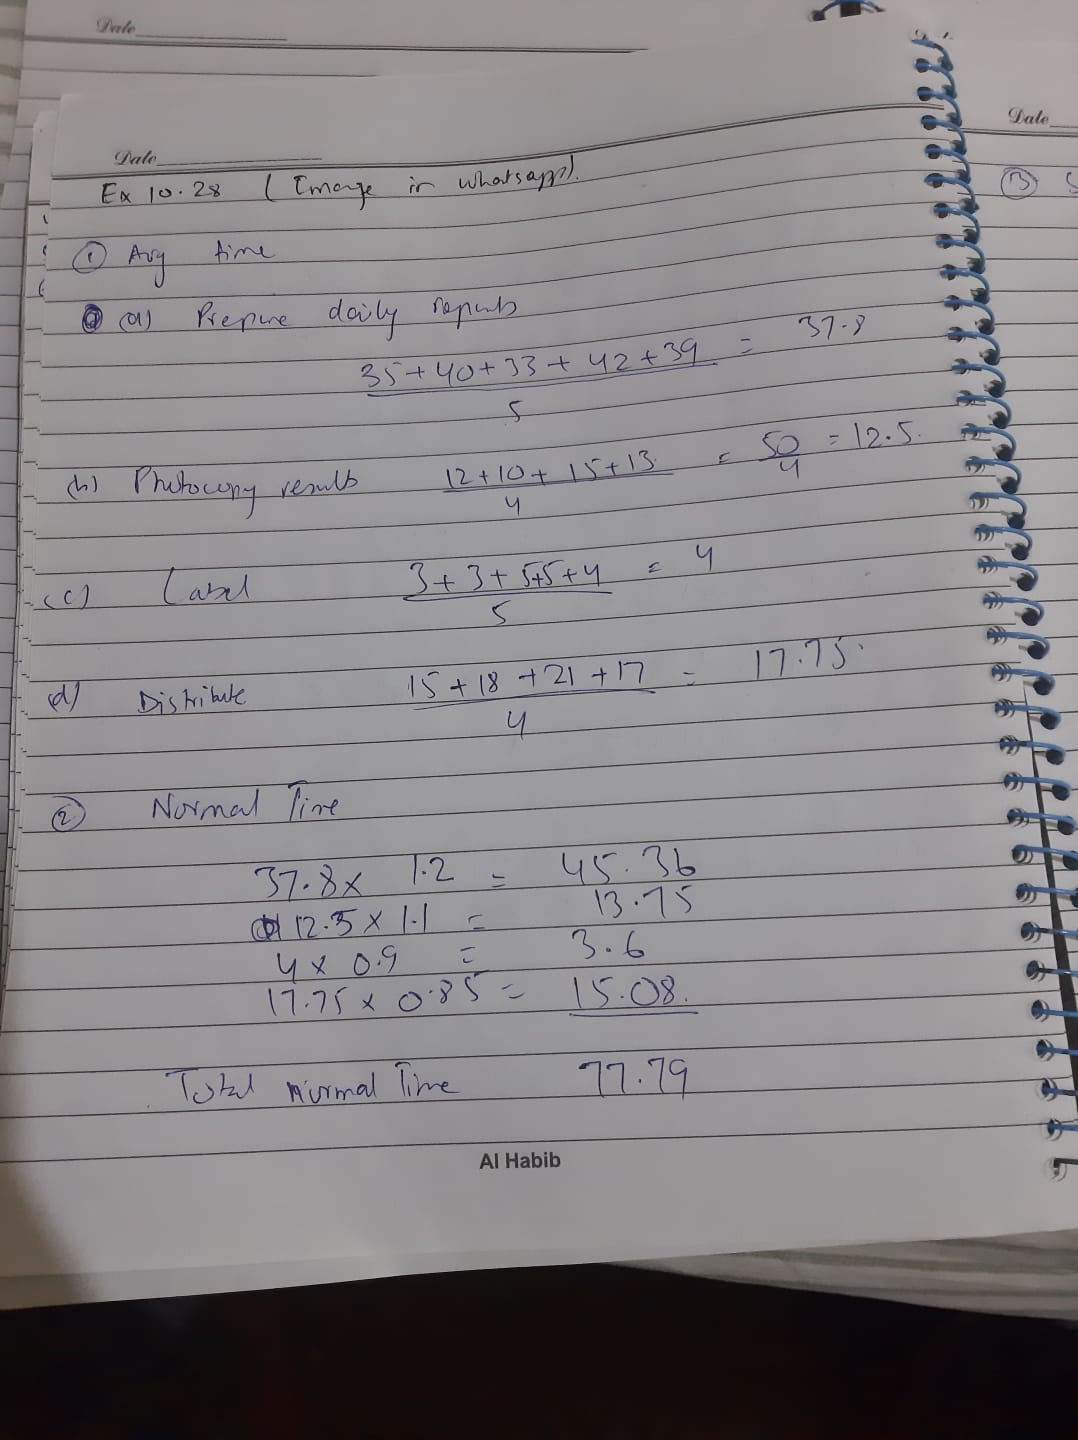 Date
Date
Date
Ex 10.28 (Image in whatsapp).
① Avg time
(a) Prepare daily reports
35+40+33+42+39 = 37.8
5
(b) Photocopy results 12+10+15+13 = 50 = 12.5.
4 4
(c) Label 3+3+5+5+4 = 4
5
(d) Distribute 15+18+21+17 = 17.75.
4
② Normal Time
37.8 x 1.2 = 45.36
12.5 x 1.1 = 13.75
4 x 0.9 = 3.6
17.75 x 0.85 = 15.08.
Total Normal Time 77.79
Al Habib
③